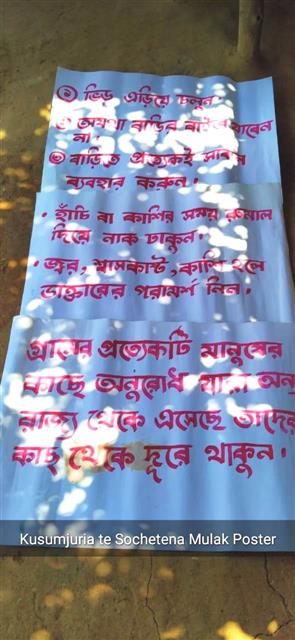 ① ভিড় এড়িয়ে চলুন
② অযথা বাড়ির বাইরে যাবেন
না।
③ বাড়িতে প্রত্যেকই সাবান
ব্যবহার করুন।
• হাঁচি বা কাশির সময় রুমাল
দিয়ে নাক ঢাকুন।
• জ্বর, শ্বাসকষ্ট, কাশি হলে
ডাক্তারের পরামর্শ নিন।
গ্রামের প্রত্যেকটি মানুষের
কাছে অনুরোধ যারা অন্য
রাজ্য থেকে এসেছে তাদের
কাছ থেকে দূরে থাকুন।
Kusumjuria te Sochetena Mulak Poster